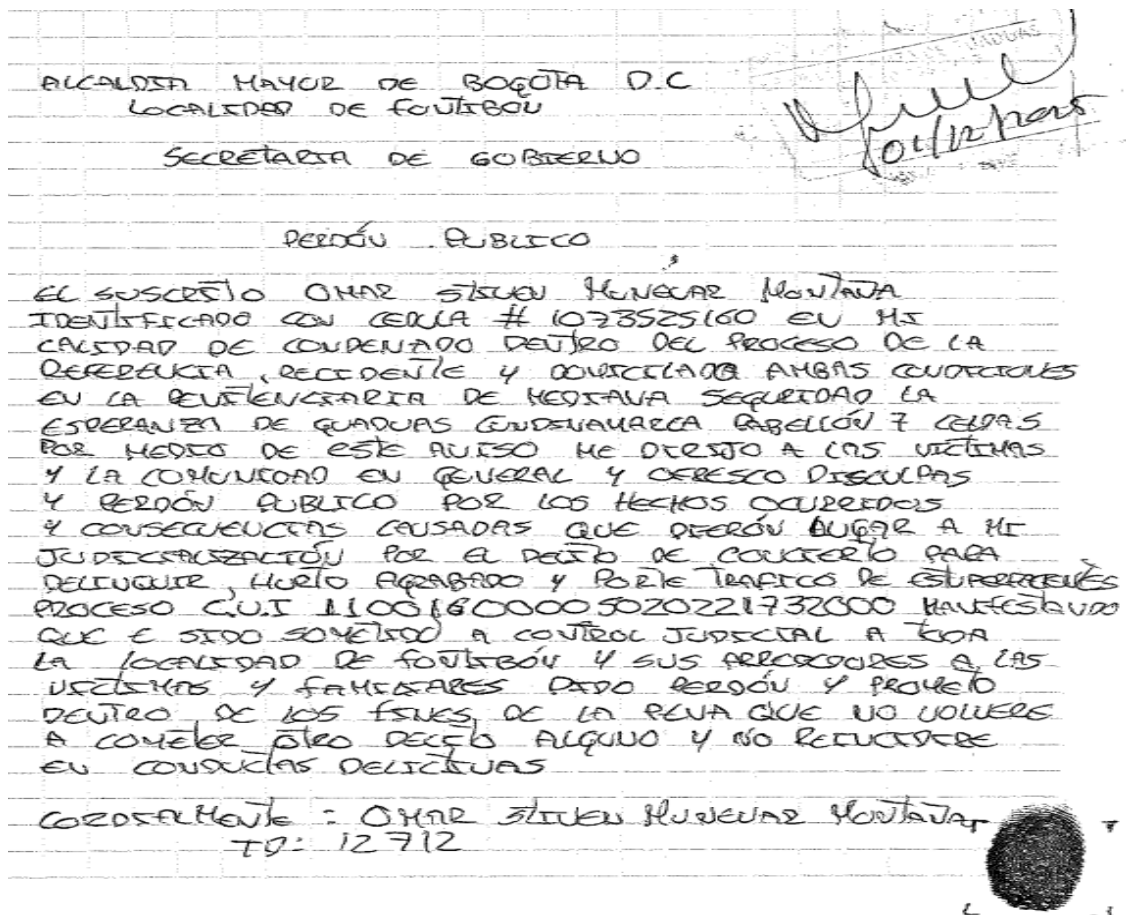 ALCALDIA MAYOR DE BOGOTA D.C
LOCALIDAD DE FONTIBON
SECRETARIA DE GOBIERNO
GUADUAS
01/12/2025
PERDÓN PUBLICO
EL SUSCRITO OMAR STIVEN MUNEVAR MONTAÑA
IDENTIFICADO CON CEDULA # 1073525160 EN MI
CALIDAD DE CONDENADO DENTRO DEL PROCESO DE LA
REFERENCIA, RECIDENTE Y DOMICILADO AMBAS CONDICIONES
EN LA PENITENCIARIA DE MEDIANA SEGURIDAD LA
ESPERANZA DE GUADUAS CUNDINAMARCA PABELLÓN 7 CELDA 5
POR MEDIO DE ESTE AVISO ME DIRIJO A LAS VICTIMAS
Y LA COMUNIDAD EN GENERAL Y OFRESCO DISCULPAS
Y PERDÓN PUBLICO POR LOS HECHOS OCURRIDOS
Y CONSECUENCIAS CAUSADAS QUE DIERÓN LUGAR A MI
JUDICIALIZACIÓN POR EL DELITO DE CONCIERTO PARA
DELINQUIR, HURTO AGRABADO Y PORTE TRAFICO DE ESTUPEFACIENTES
PROCESO C.U.I 11001600005020221732000 MANIFESTANDO
QUE E SIDO SOMETIDO A CONTROL JUDICIAL A TODA
LA LOCALIDAD DE FONTIBÓN Y SUS ALREDEDORES A LAS
VICTIMAS Y FAMILIARES PIDO PERDÓN Y PROMETO
DENTRO DE LOS FINES DE LA PENA QUE NO VOLVERE
A COMETER OTRO DELITO ALGUNO Y NO REINCIDIRE
EN CONDUCTAS DELICTIVAS
CORDIALMENTE : OMAR STIVEN MUNEVAR MONTAÑA
TD: 12712